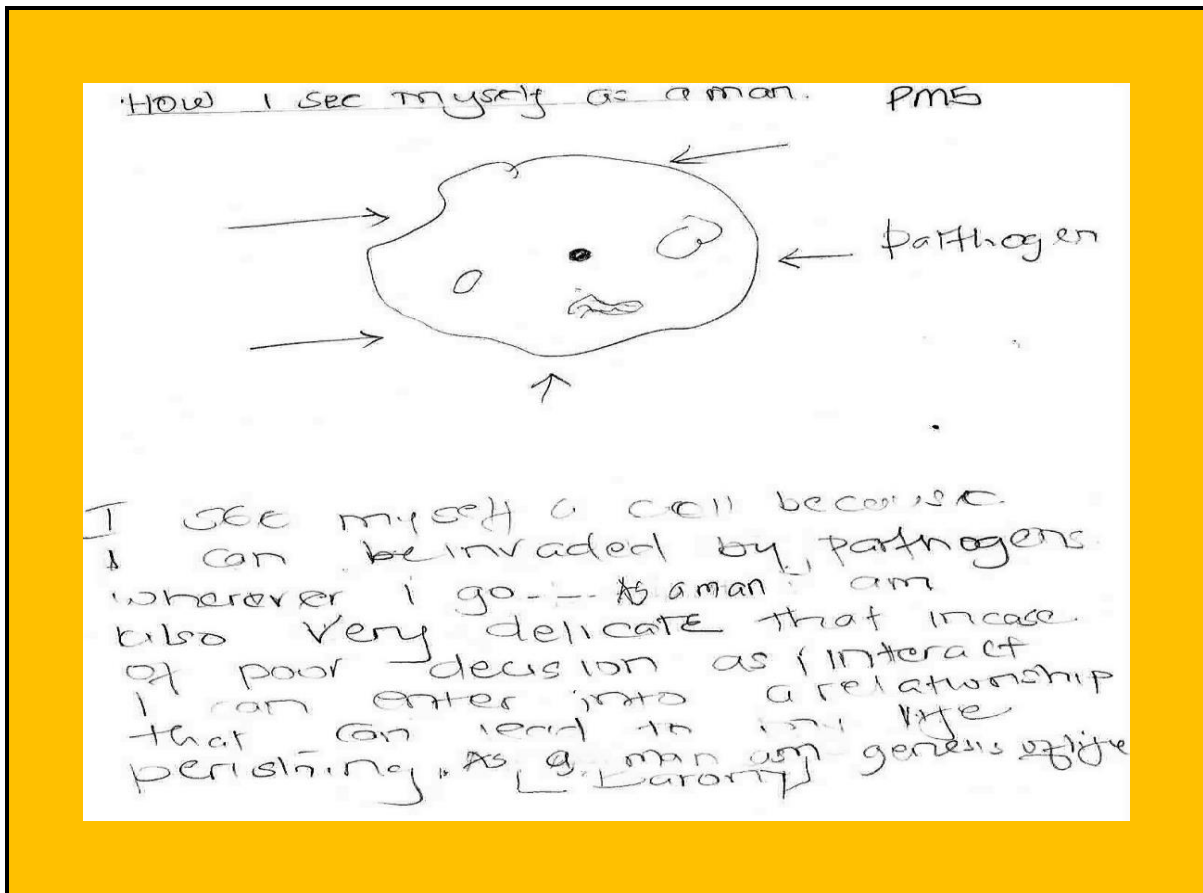 How I see myself as a man. PM5
parthogen
I see myself a cell because
I can be invaded by parthogens
wherever i go--- As a man am
also very delicate that incase
of poor decision as i interact
i can enter into a relationship
that can lead to my life
perishing. As a man am genesis of life